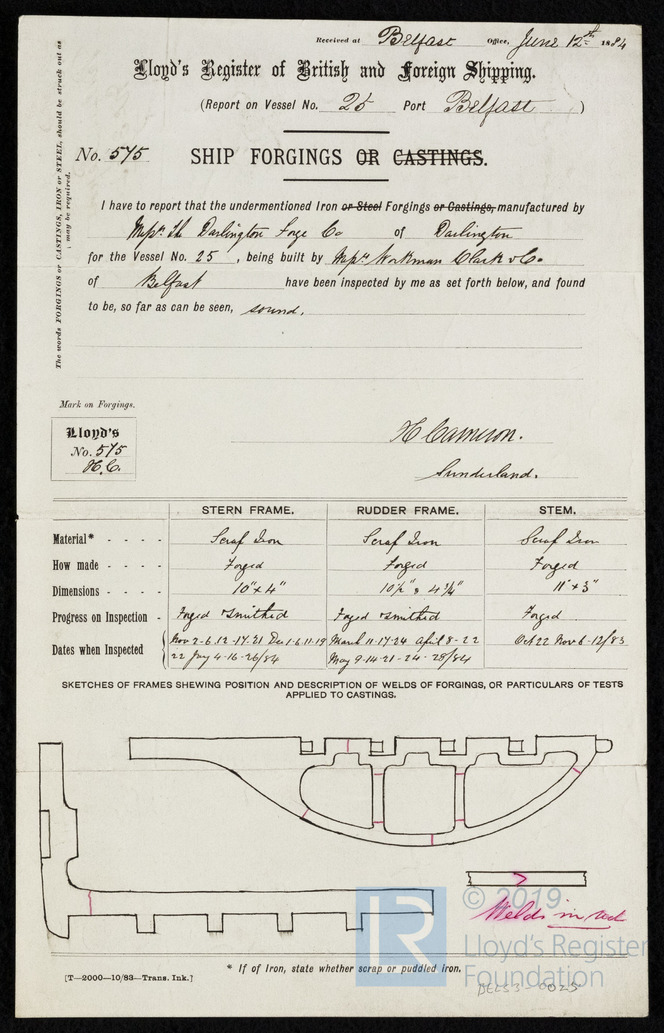 Received at Belfast Office, June 12th 1884
Lloyd's Register of British and Foreign Shipping.
(Report on Vessel No. 25 Port Belfast )
No. 575 SHIP FORGINGS OR CASTINGS.
The words FORGINGS or CASTINGS, IRON or STEEL, should be struck out as
may be required.
I have to report that the undermentioned Iron or Steel Forgings or Castings, manufactured by
Messrs The Darlington Forge Co of Darlington
for the Vessel No. 25 , being built by Messrs Workman Clark & Co
of Belfast have been inspected by me as set forth below, and found
to be, so far as can be seen, sound.
Mark on Forgings.
Lloyd's
No. 575
H.C.
H Cameron.
Sunderland.
STERN FRAME. RUDDER FRAME. STEM.
Material* - - - - Scrap Iron Scrap Iron Scrap Iron
How made - - - - Forged Forged Forged
Dimensions - - - - 10" x 4" 10½" x 4¾" 11" x 3"
Progress on Inspection - Forged & Smithed Forged & Smithed Forged
Dates when Inspected Nov 2-6.12-17.21 Dec 1.6.11.19 March 11-17-24 April 8-22 Oct 22 Nov 6-12/83
22 Jany 4-16-26/84 May 9-14-21-24-28/84
SKETCHES OF FRAMES SHEWING POSITION AND DESCRIPTION OF WELDS OF FORGINGS, OR PARTICULARS OF TESTS
APPLIED TO CASTINGS.
Welds in red
© 2019
LR
Lloyd's Register
Foundation
* If of Iron, state whether scrap or puddled iron.
[T—2000—10/83—Trans. Ink.]
BEL53-0025